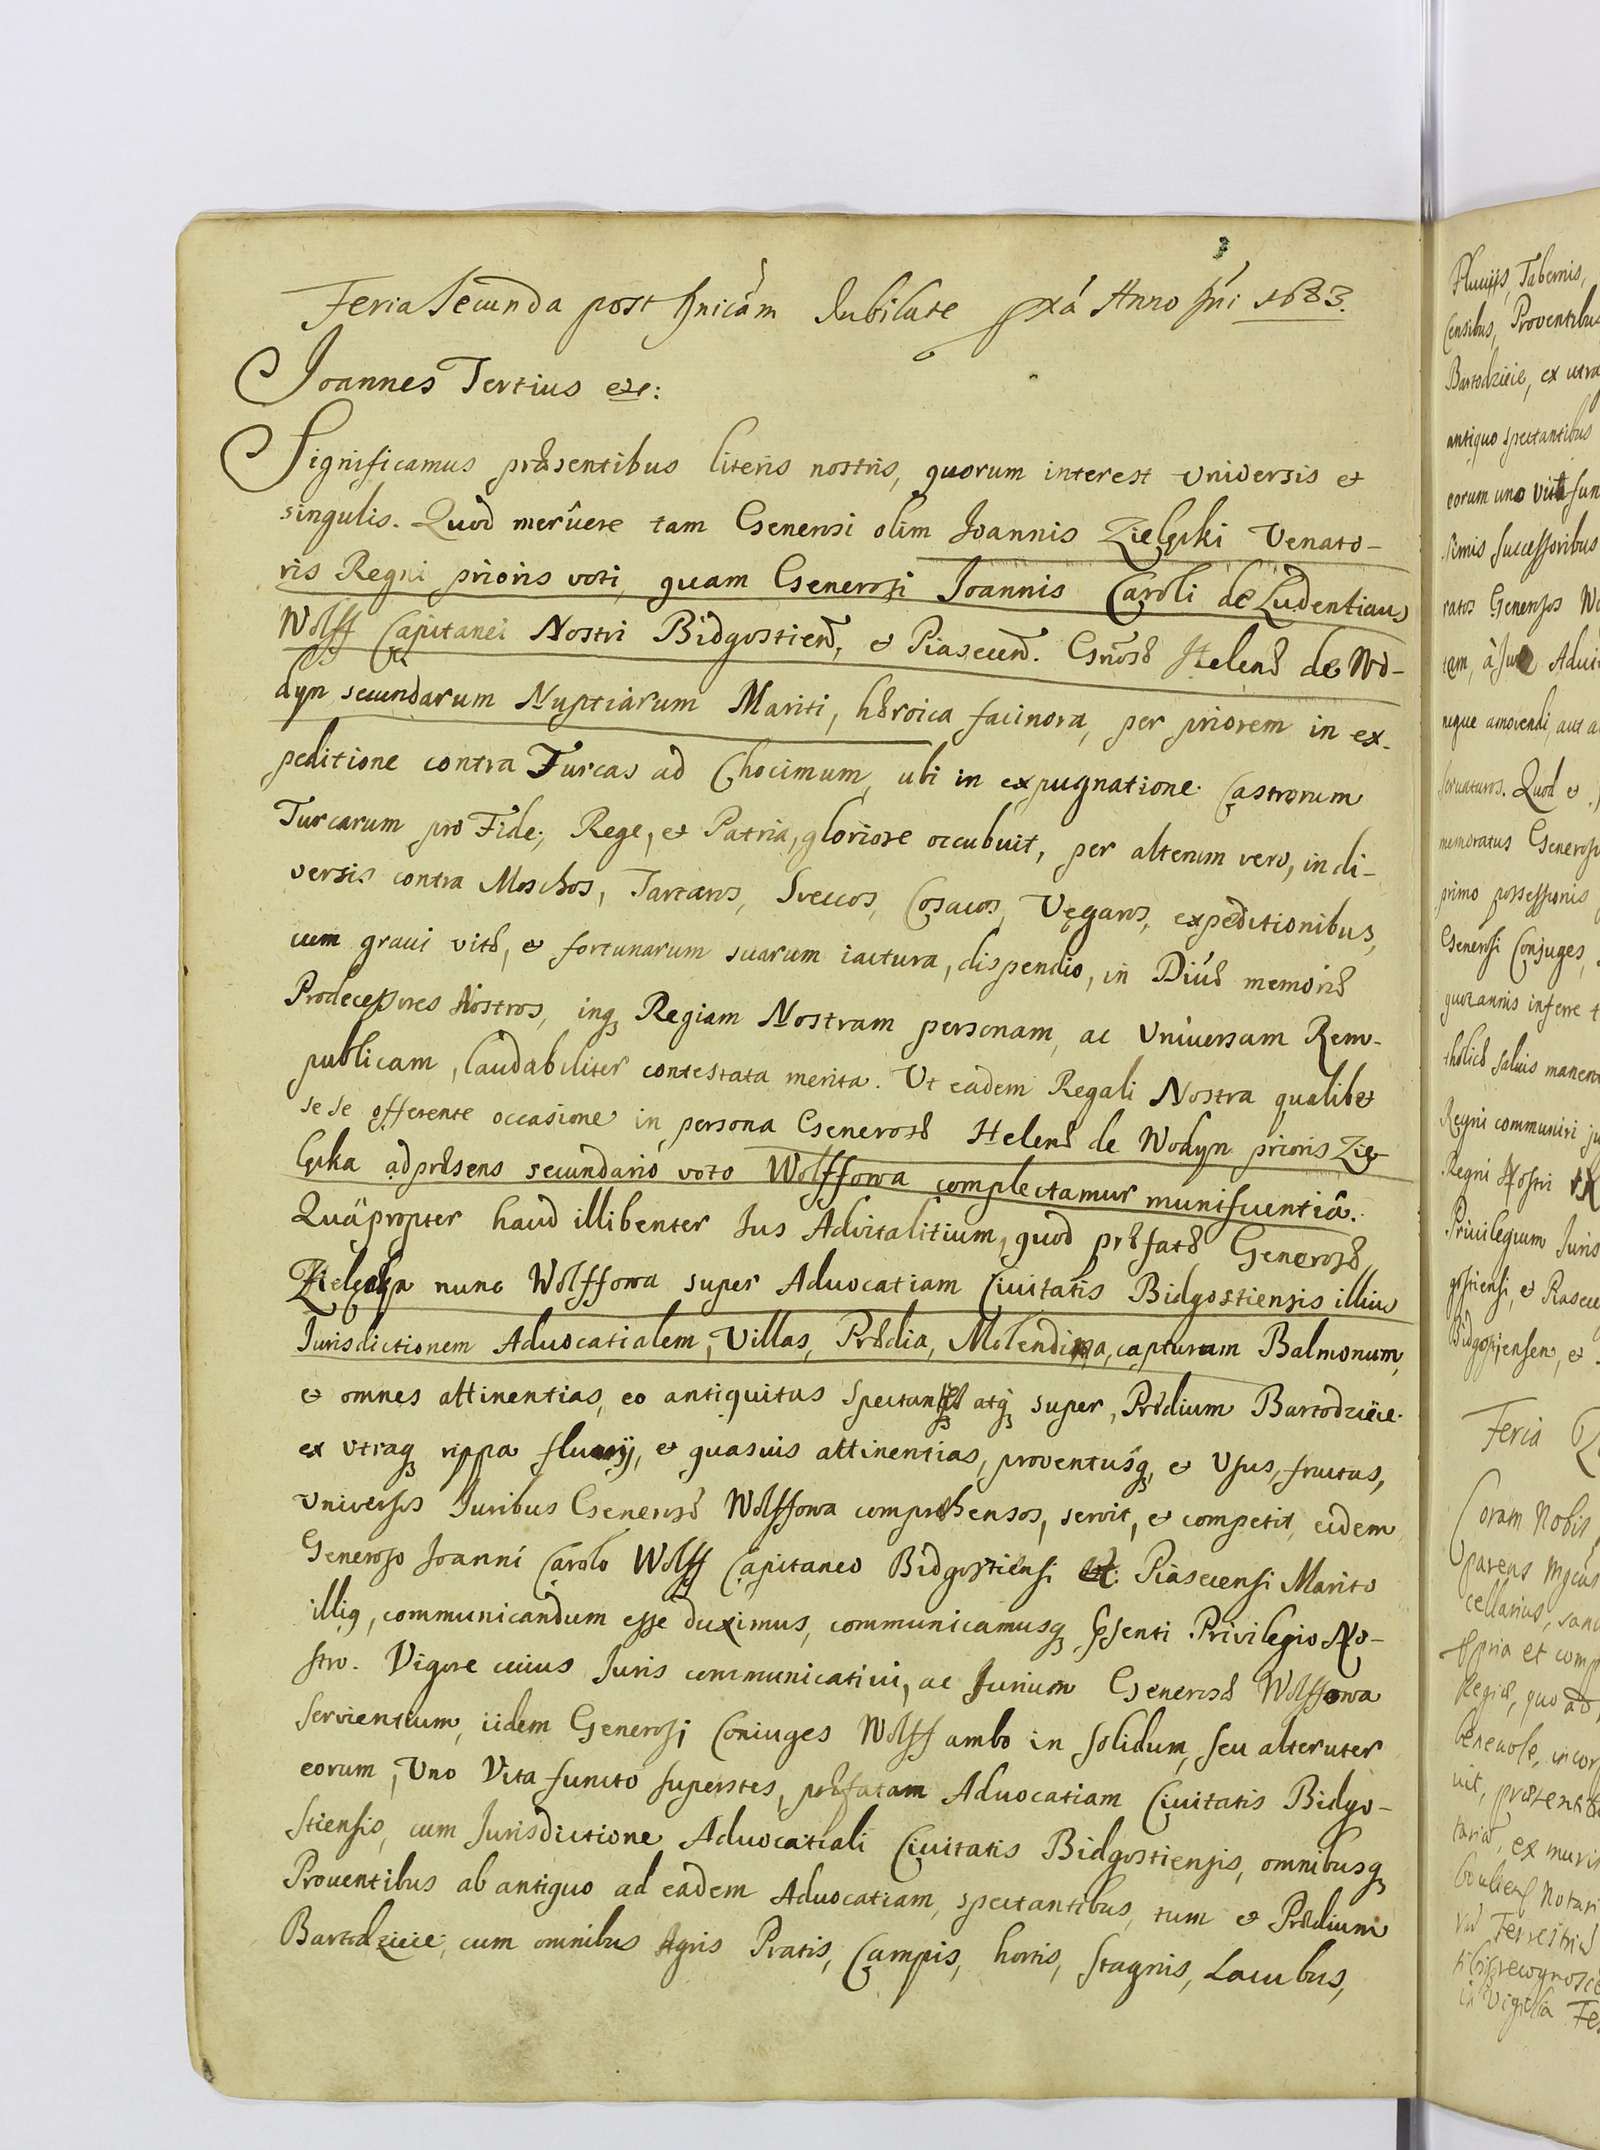 Feria Secunda post Dnicam Jubilate pxá Anno Dni 1683.
Joannes Tertius etc:
Significamus præsentibus literis nostris, quorum interest Universis et
singulis. Quod meruere tam Generosi olim Joannis Zielęcki Venato-
ris Regni prioris voti, quam Generosi Joannis Caroli de Ludentiaus
Wolff Capitanei Nostri Bidgostien, et Piasecen. Gnosæ Helenæ de Wo-
dyn secundarum Nuptiarum Mariti, hæroica facinora, per priorem in ex-
peditione contra Turcas ad Chocimum, ubi in expugnatione Castrorum
Turcarum pro Fide, Rege, et Patria, gloriose occubuit, per alterum vero, in di-
versis contra Moschos, Tartaros, Sveccos, Cosacos, Vęgaros, expeditionibus,
cum graui vitæ, et fortunarum suarum iactura, dispendio, in Divæ memoriæ
Prædecessores Nostros, inq Regiam Nostram personam, ac Universam Rem-
publicam, laudabiliter contestata merita. Ut eadem Regali Nostra qualibet
se se offerente occasione in persona Generosæ Helenæ de Wodyn prioris Zie-
lęcka ad præsens secundario voto Wolffowa complectamur munificentiâ.
Quäpropter haud illibenter Jus Advitalitium, quod præfatæ Generosæ
Zielęcka nunc Wolffowa super Aduocatiam Ciuitatis Bidgostiensis illius
Jurisdictionem Aduocatialem, Villas, Prædia, Molendina, capturam Balmonum,
et omnes attinentias, eo antiquitus Spectan atq super, Prædium Bartodzieie
ex utraq rippa fluuij, et quasuis attinentias, proventusq, et Usus, fructus,
Universos Juribus Generosæ Wolffowa compræhensos, servit, et competit, eidem
Generoso Joanni Carolo Wolff Capitaneo Bidgostiensi et Piasecensi Marito
illiq, communicandum esse duximus, communicamusq Psenti Privilegio No-
stro. Vigore cuius Juris communicatiui, ac Jurium Generosæ Wolffowa
Servientium, iidem Generosi Coniuges Wolff ambo in solidum, seu alteruter
eorum, Uno Vita functo superstes, præfatam Aduocatiam Ciuitatis Bidgo-
stiensis, cum Jurisdictione Aduocatiali Ciuitatis Bidgostiensis, omnibusq
Prouentibus ab antiquo ad eadem Aduocatiam, spectantibus, tum et Prædium
Bartodzieie, cum omnibus Agris Pratis, Campis, hortis, Stagnis, Lacubus,
Fluuijs, Tabernis,
Censibus, Proventibus
Bartodzieie, ex utra
antiquo spectantibus
eorum uno vita fun
simis Successoribus
ratos Generosos Wo
tam, à Jure Advi
neque amovendi, aut a
servaturos. Quod et
memoratus Generos
primo possessionis
Generosi Conjuges,
quotannis inferre t
tholicæ salvis manen
Regni communiri ju
Regni Nostri
Privilegium Juris
gostiensi, et Piasece
Bidgostiensem, et
Feria
Coram Nobis
parens
cellarius, sanc
ppria et comp
Regiæ, quo ad
benevole, incor
vit, præsent
tariæ, ex
Notari
Terrestri
recognosce
in Vigilia Fe